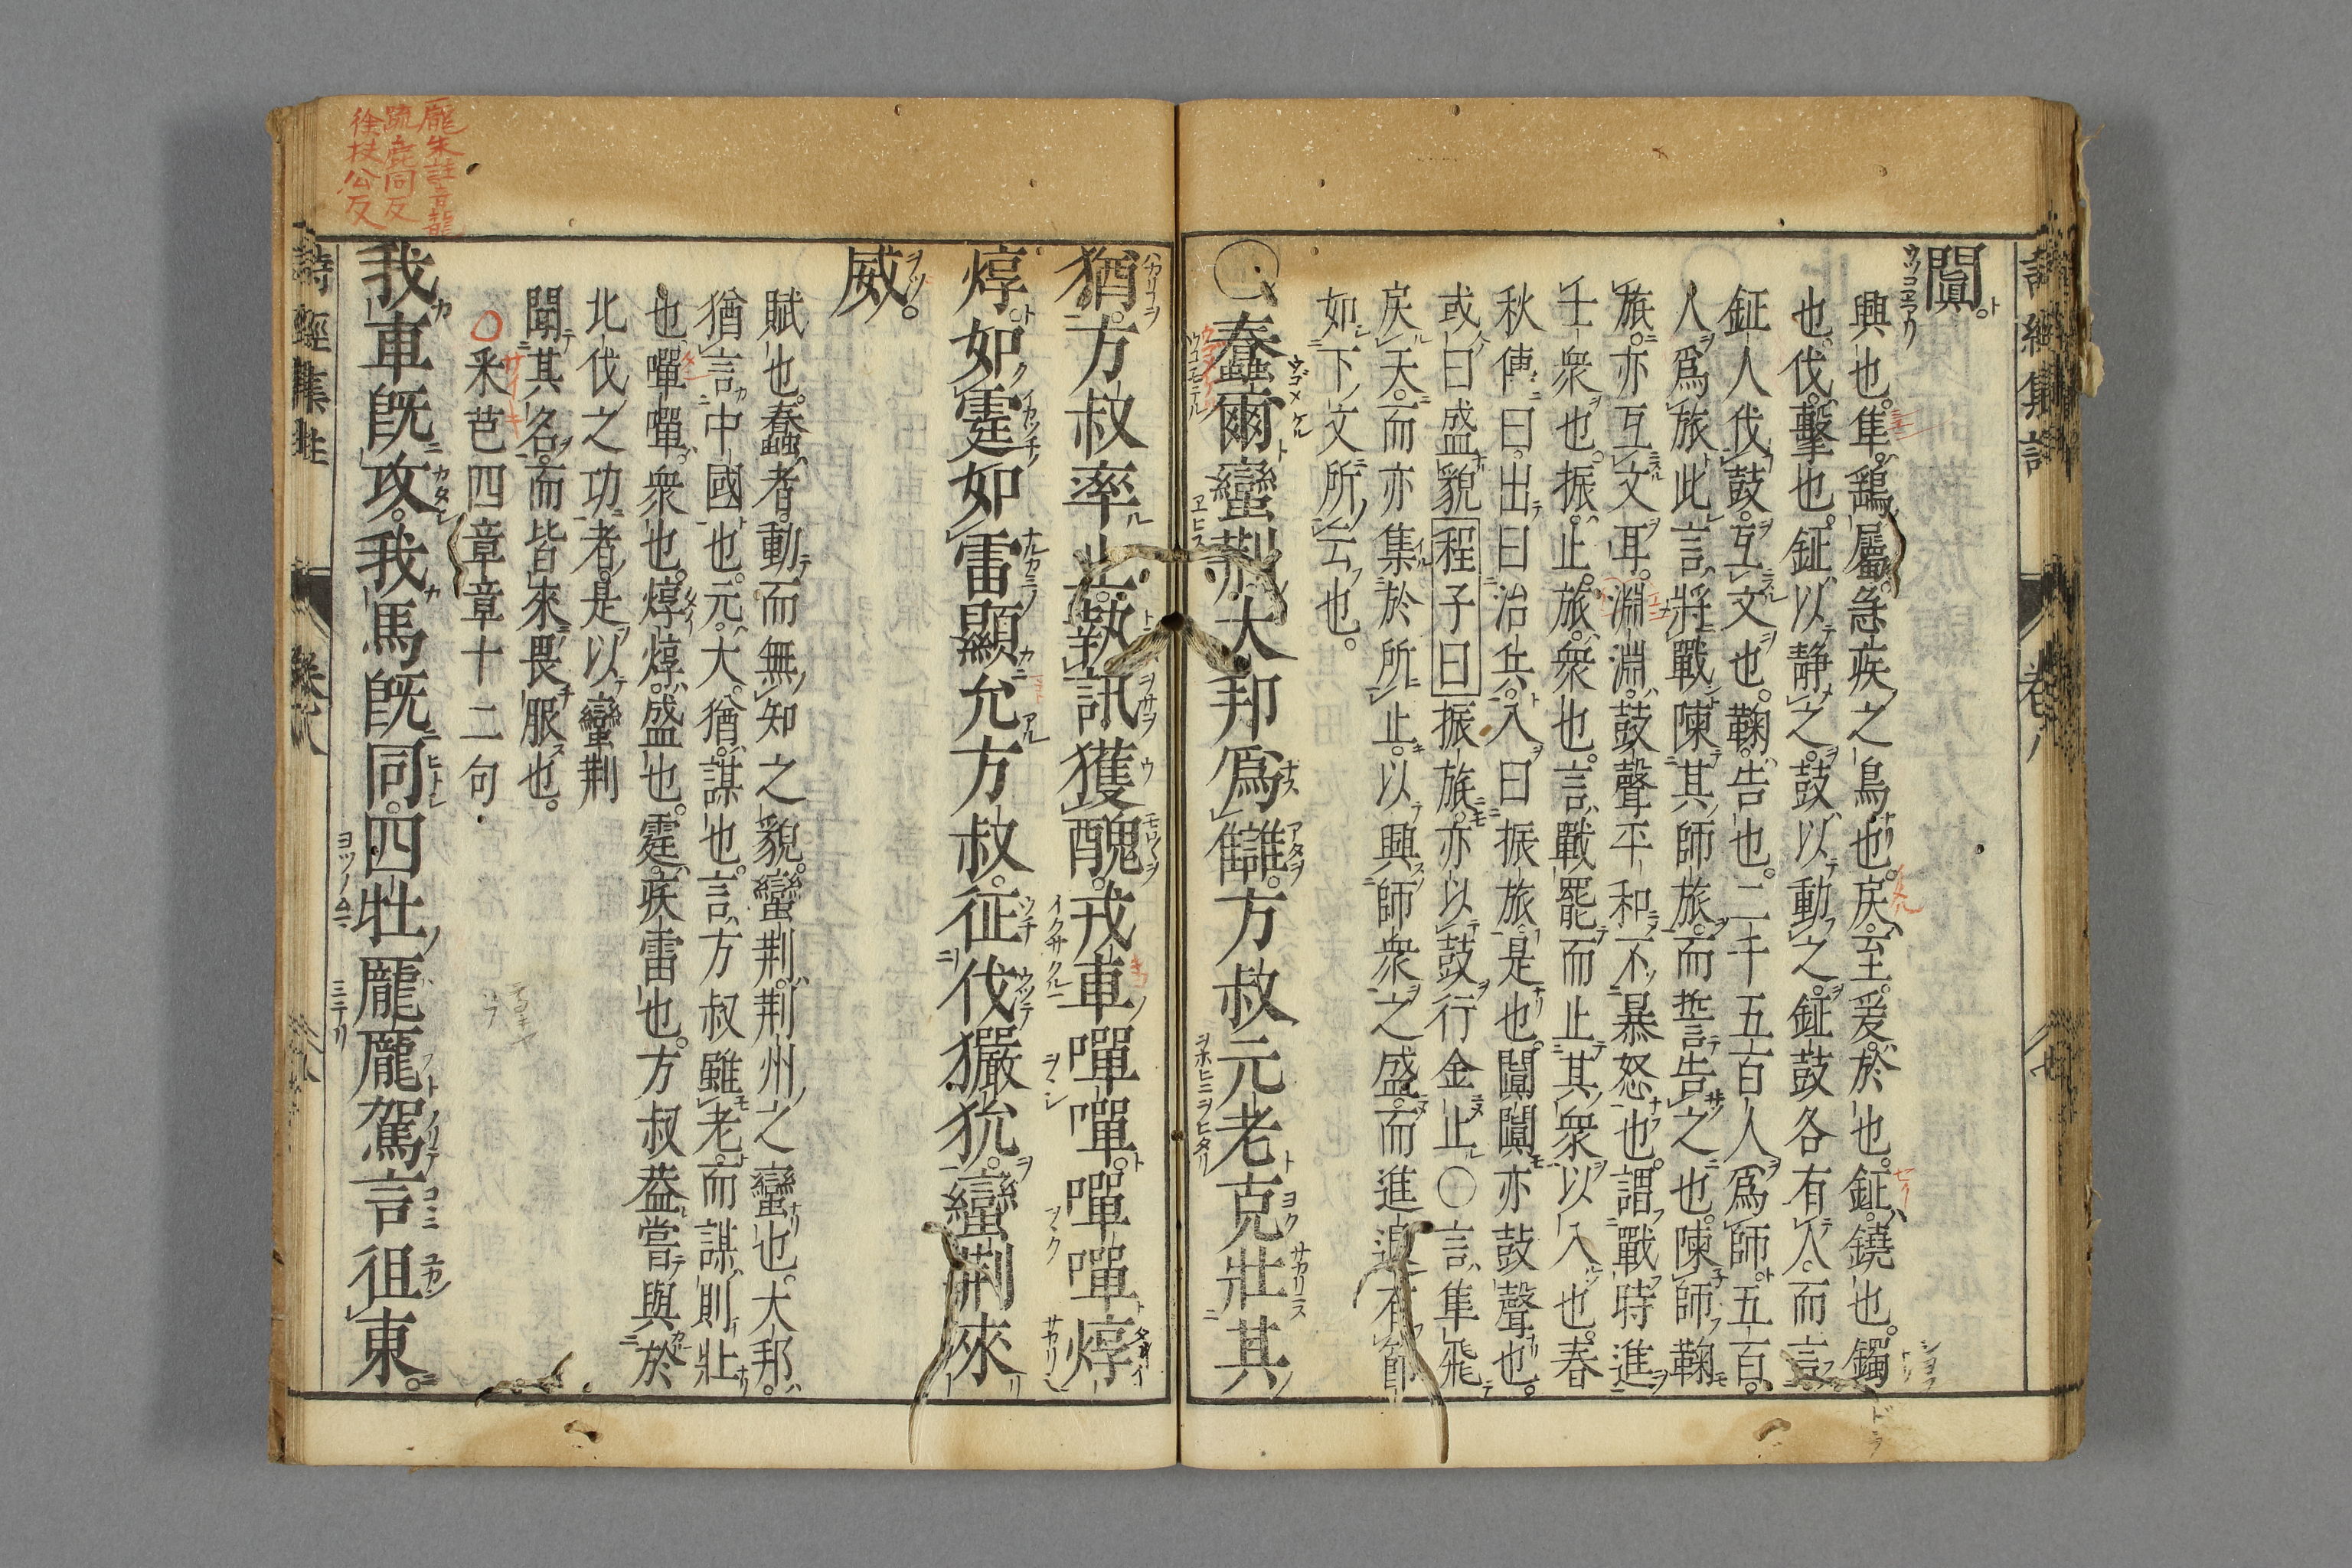 詩經集註 卷八 七
闐
興也。隼鷂屬。急疾之鳥也。戾至。爰於也。鉦鐃也。鐲
也。伐擊也。鉦以静之。鼓以動之。鉦鼓各有人。而言
鉦人伐鼓。互文也。鞠告也。二千五百人爲師。五百
人爲旅。此言將戰陳其師旅。而誓告之也。陳師鞠
旅。亦互文耳。淵淵鼓聲平和不暴怒也。謂戰時進
士衆也。振止。旅衆也。言戰罷而止其衆以入也。春
秋傳曰。出曰治兵。入曰振旅。是也。闐闐亦鼓聲也。
或曰盛貌程子曰振旅。亦以鼓行金止○言隼飛
戾天。而亦集於所止。以興師衆之盛。而進退有節
如下文所云也。
○蠢爾蠻荆大邦爲讎。方叔元老克壯其
猶。方叔率止。執訊獲醜。戎車嘽嘽。嘽嘽焞
焞。如霆如雷顯允方叔。征伐玁狁。蠻荆來
威。
賦也。蠢者。動而無知之貌。蠻荆。荆州之蠻也。大邦。
猶言中國也。元。大。猶。謀也。言方叔雖老。而謀則壯
也。嘽嘽。衆也。焞焞。盛也。霆。疾雷也。方叔葢嘗與於
北伐之功者。是以蠻荆
聞其名。而皆來畏服也。
○釆芭四章章十二句
我車旣攻。我馬旣同。四牡龐龐駕言徂東。
詩經集註 卷八
龐朱註音龍
疏鹿同反
徐扶公反